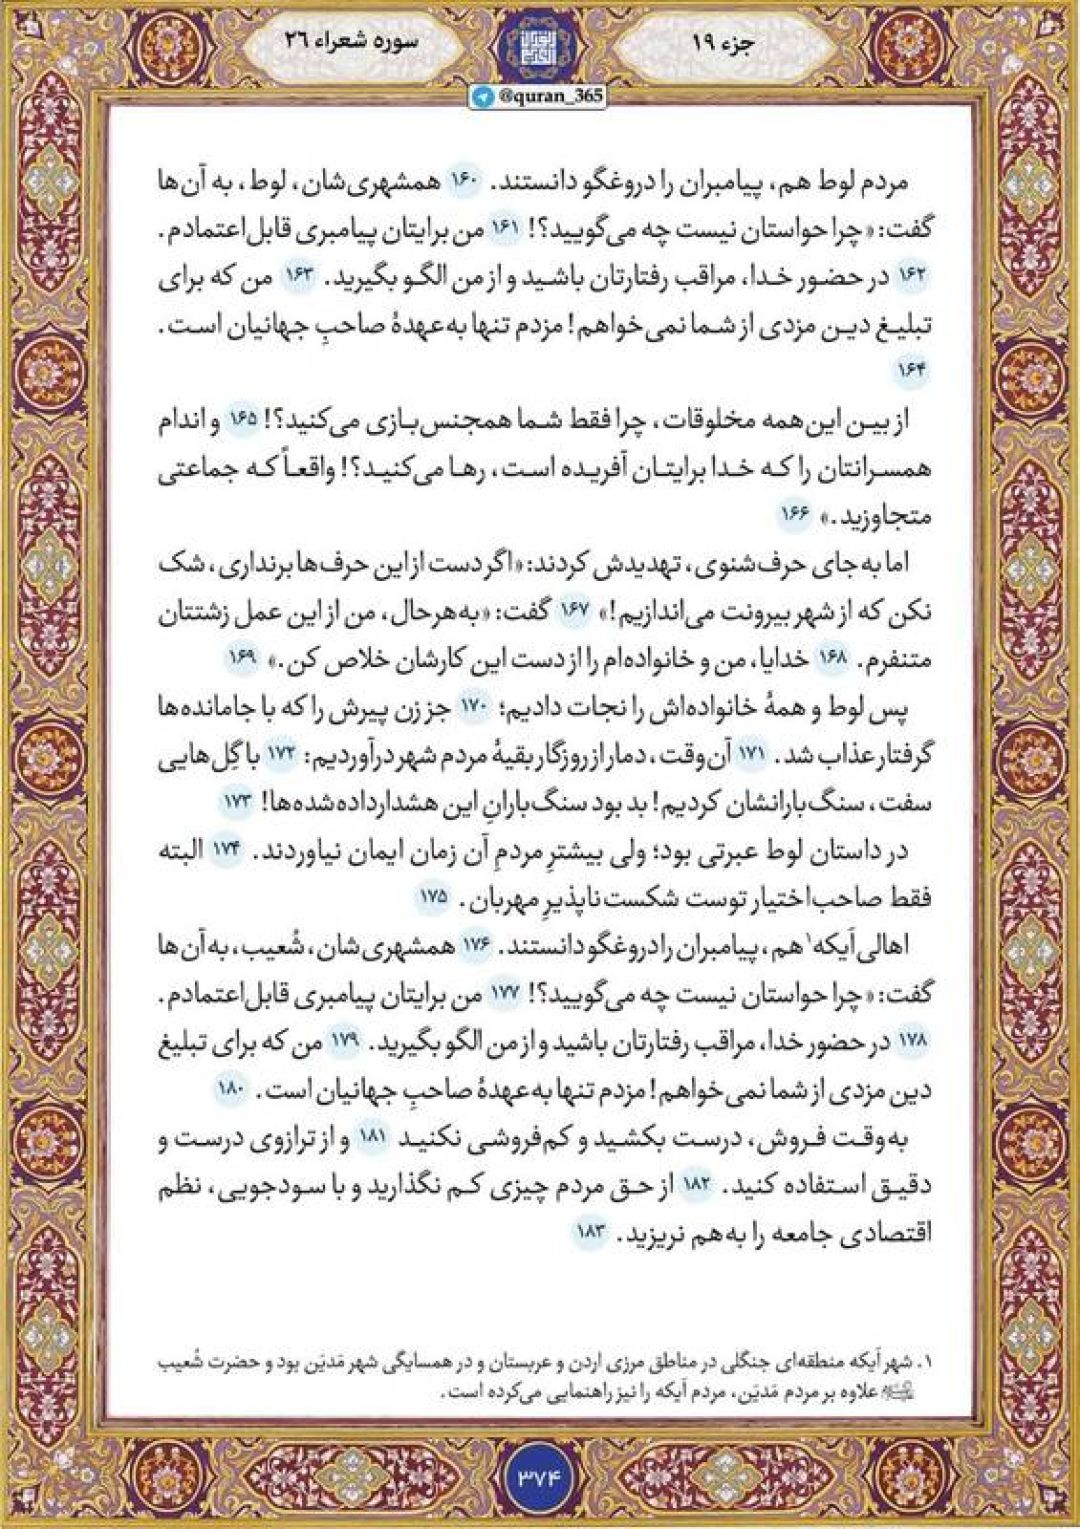 جزء ۱۹
سوره شعراء ۲۶
@quran_365
مردم لوط هم، پیامبران را دروغگو دانستند. ۱۶۰ همشهری‌شان، لوط، به آن‌ها
گفت: «چرا حواستان نیست چه می‌گویید؟! ۱۶۱ من برایتان پیامبری قابل‌اعتمادم.
۱۶۲ در حضور خدا، مراقب رفتارتان باشید و از من الگو بگیرید. ۱۶۳ من که برای
تبلیغ دین مزدی از شما نمی‌خواهم! مزدم تنها به‌عهدهٔ صاحبِ جهانیان است.
۱۶۴
از بین این‌همه مخلوقات، چرا فقط شما همجنس‌بازی می‌کنید؟! ۱۶۵ و اندام
همسرانتان را که خدا برایتان آفریده است، رها می‌کنید؟! واقعاً که جماعتی
متجاوزید.» ۱۶۶
اما به جای حرف‌شنوی، تهدیدش کردند: «اگر دست از این حرف‌ها برنداری، شک
نکن که از شهر بیرونت می‌اندازیم!» ۱۶۷ گفت: «به‌هرحال، من از این عمل زشتتان
متنفرم. ۱۶۸ خدایا، من و خانواده‌ام را از دست این کارشان خلاص کن.» ۱۶۹
پس لوط و همهٔ خانواده‌اش را نجات دادیم؛ ۱۷۰ جز زن پیرش را که با جامانده‌ها
گرفتار عذاب شد. ۱۷۱ آن‌وقت، دمار از روزگار بقیهٔ مردم شهر درآوردیم: ۱۷۲ با گِل‌هایی
سفت، سنگ‌بارانشان کردیم! بد بود سنگ‌بارانِ این هشدارداده‌شده‌ها! ۱۷۳
در داستان لوط عبرتی بود؛ ولی بیشترِ مردمِ آن زمان ایمان نیاوردند. ۱۷۴ البته
فقط صاحب‌اختیار توست شکست‌ناپذیرِ مهربان. ۱۷۵
اهالی اَیکه۱ هم، پیامبران را دروغگو دانستند. ۱۷۶ همشهری‌شان، شُعیب، به آن‌ها
گفت: «چرا حواستان نیست چه می‌گویید؟! ۱۷۷ من برایتان پیامبری قابل‌اعتمادم.
۱۷۸ در حضور خدا، مراقب رفتارتان باشید و از من الگو بگیرید. ۱۷۹ من که برای تبلیغ
دین مزدی از شما نمی‌خواهم! مزدم تنها به‌عهدهٔ صاحبِ جهانیان است. ۱۸۰
به‌وقت فروش، درست بکشید و کم‌فروشی نکنید ۱۸۱ و از ترازوی درست و
دقیق استفاده کنید. ۱۸۲ از حق مردم چیزی کم نگذارید و با سودجویی، نظم
اقتصادی جامعه را به‌هم نریزید. ۱۸۳
۱. شهر اَیکه منطقه‌ای جنگلی در مناطق مرزی اردن و عربستان و در همسایگی شهر مَدیَن بود و حضرت شُعیب
علاوه بر مردم مَدیَن، مردم اَیکه را نیز راهنمایی می‌کرده است.
۳۷۴